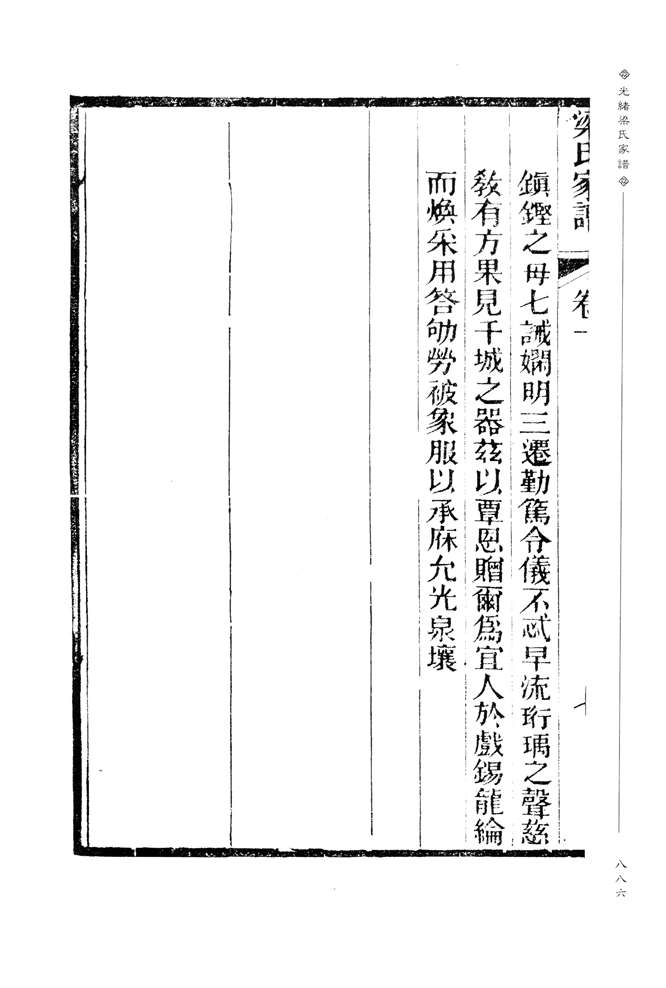 光緒梁氏家譜
梁氏家譜 卷一
七
鎮鏗之母七誡嫻明三遷勤篤令儀不忒早流珩瑀之聲慈
教有方果見干城之器茲以覃恩贈爾爲宜人於戲錫龍綸
而煥采用答劬勞被象服以承庥允光泉壤
八八六